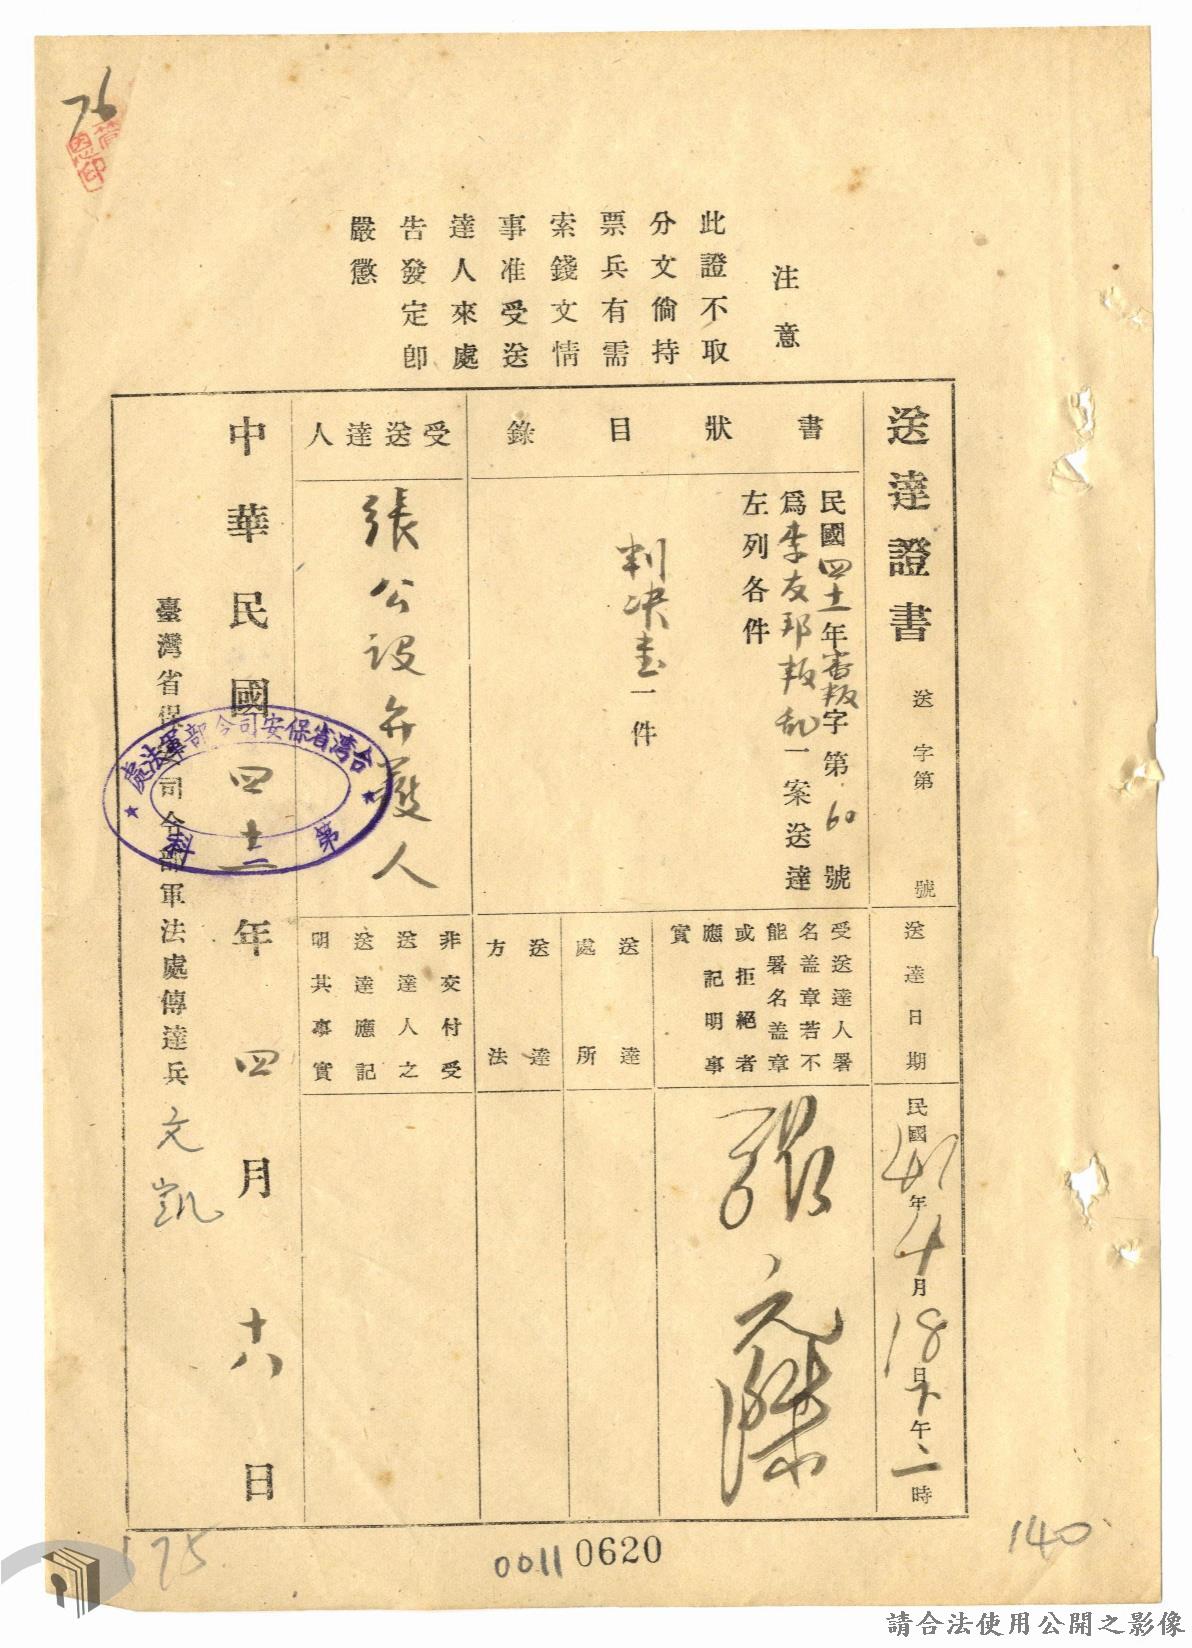 76
管恩仲
注意
此證不取
分文倘持
票兵有需
索錢文情
事准受送
達人來處
告發定卽
嚴懲
送達證書
送字第 號
送達日期
民國41年4月18日下午二時
書狀目錄
民國四十一年審叛字第60號
爲李友邦叛乱一案送達
左列各件
判決壹一件
受送達人署
名盖章若不
能署名盖章
或拒絕者
應記明事
實
送達
處所
送達
方法
受送達人
張公設弁護人
非交付受
送達人之
送達應記
明其事實
中華民國四十一年四月十八日
臺灣省保安司令部軍法處傳達兵 文凱
台湾省保安司令部軍法處
第 科
175
0011
0620
140
請合法使用公開之影像